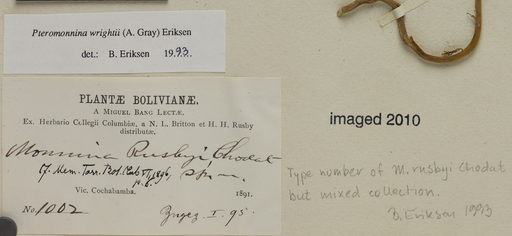 Pteromonnina wrightii (A. Gray) Eriksen
det.: B. Eriksen 1993.
PLANTÆ BOLIVIANÆ,
A MIGUEL BANG LECTÆ.
Ex. Herbario Collegii Columbiæ, a N. L. Britton et H. H. Rusby
distributæ.
Monnina Rusbyi, Chodat
Cf. Mem. Torr. Bot. Club 1896,
Vic. Cochabamba. 1891.
No 1002 I. 95.
imaged 2010
Type number of M. rusbyi Chodat
but mixed collection.
B. Eriksen 1993